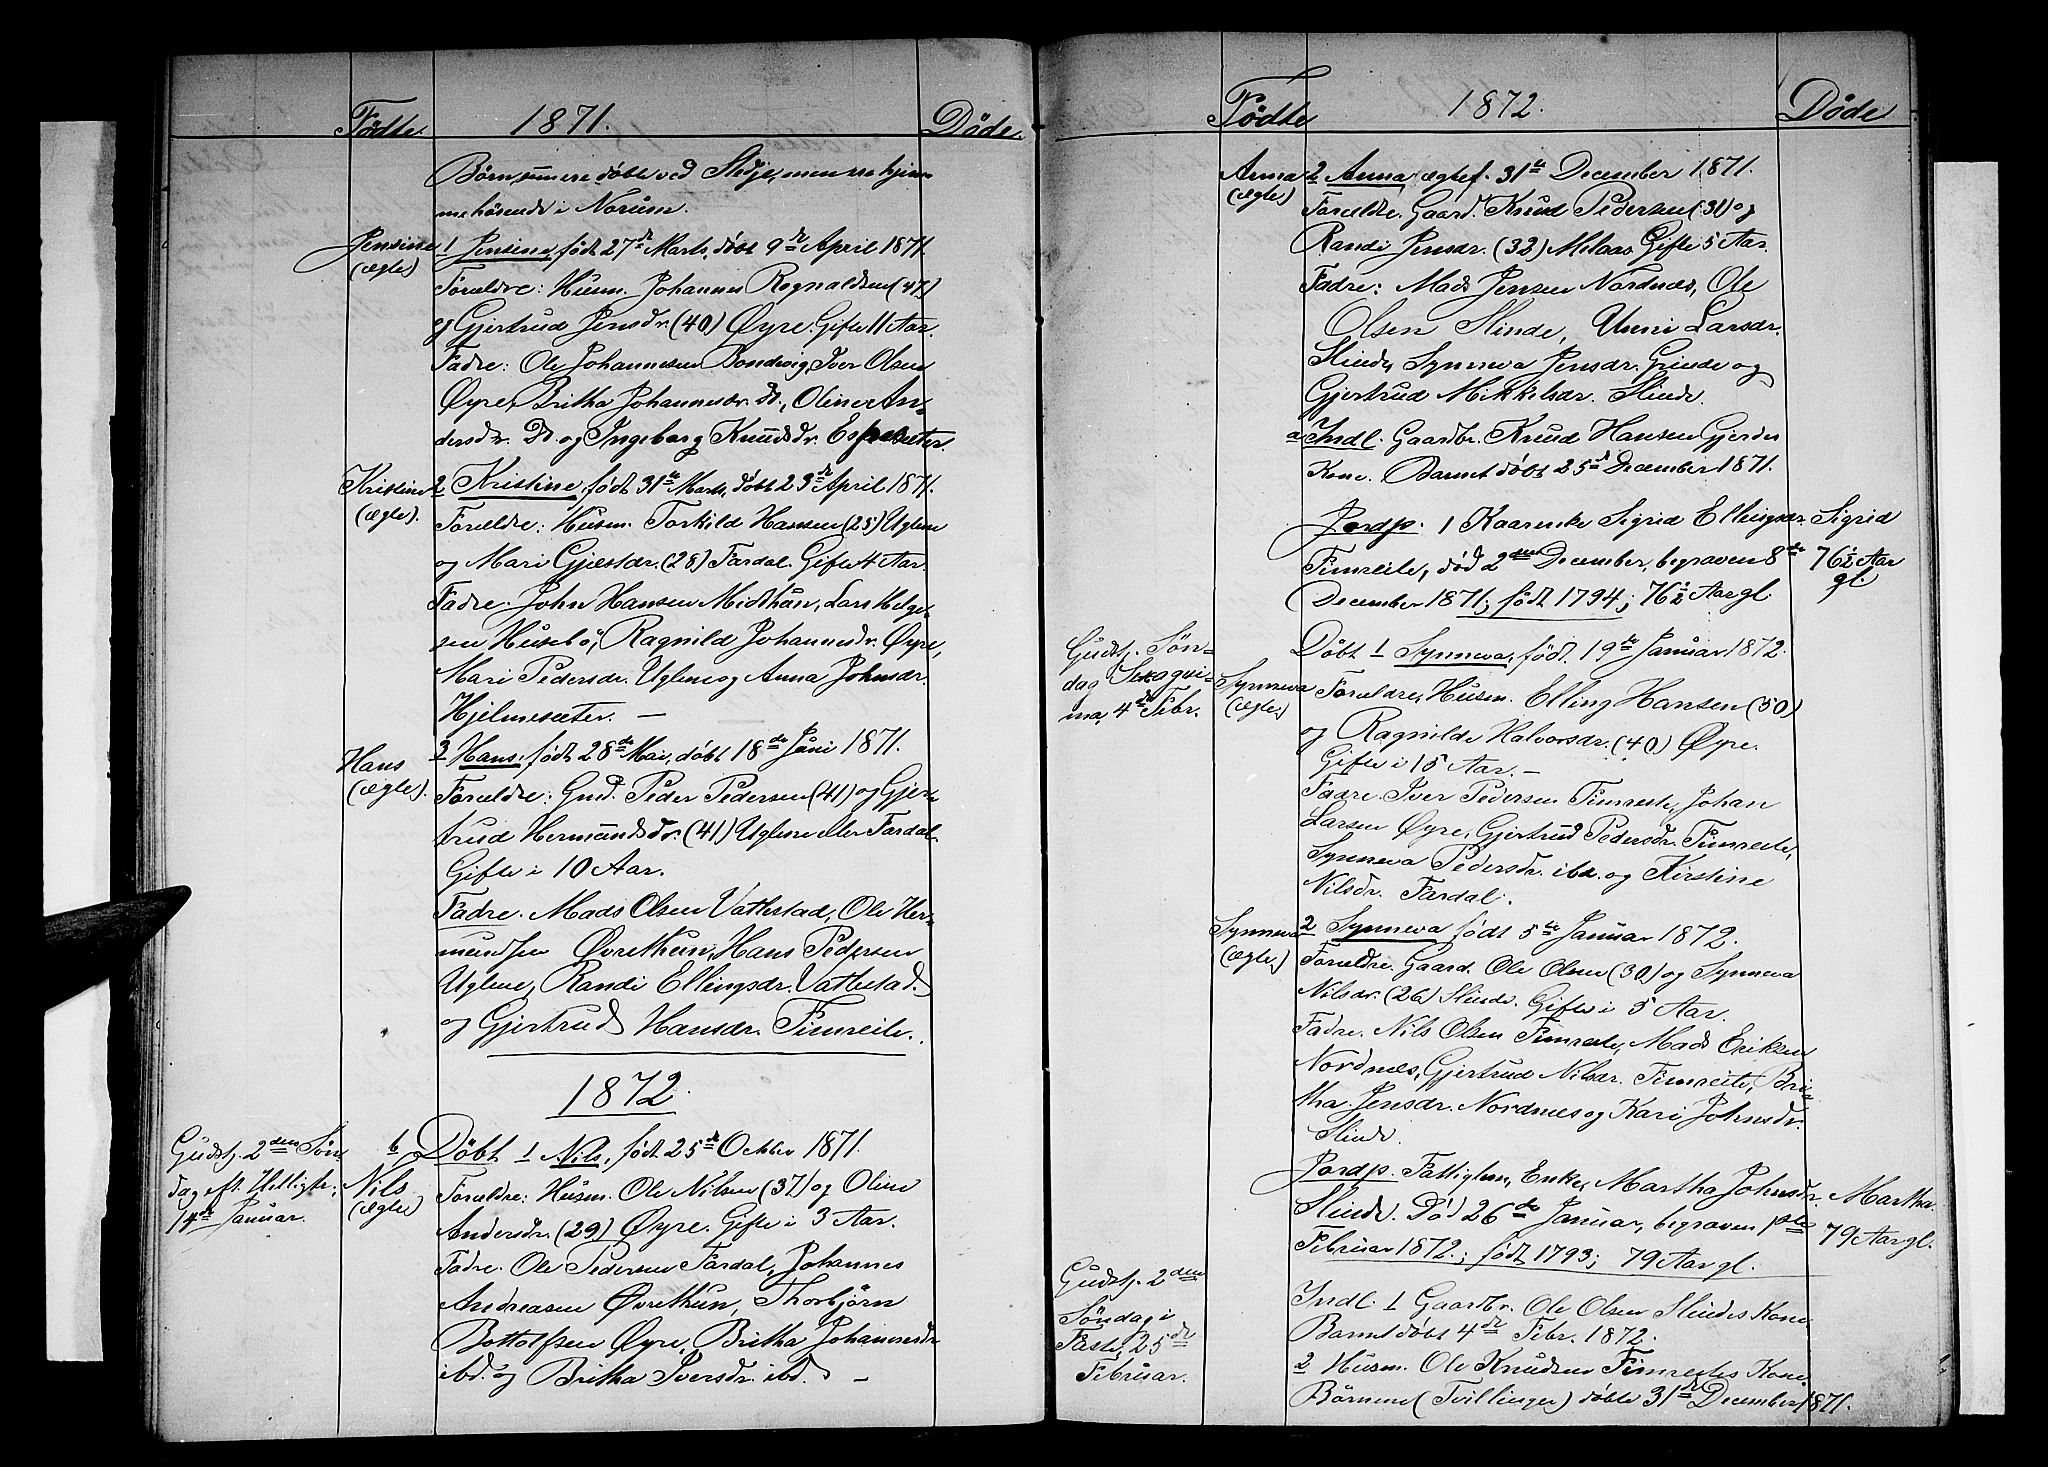 Födte 1871. Döde
Børn, som ere döbte ved Stedje, men ere hjem-
mehörende i Norum.
Jensine
(ægte)
1 Jensine, födt 27de Marts, döbt 9de April 1871.
Forældre: Husm. Johannes Rognaldsen (47)
og Gjertrud Jensdr. (40) Øyre. Gifte 11 Aar.
Fadre: Ole Johannesen Bondevig, Iver Olsen
Øyre, Britha Johannesdr. Do., Oline An-
dersdr. Do. og Ingeborg Knudsdr. Espesæter.
Kristine
(ægte).
2 Kristine, födt 31te Marts, döbt 23de April 1871.
Forældre: Husm. Torkild Hansen (25) Uglene
og Mari Gjertsdr. (28) Fardal. Gifte 4 Aar.
Fadre. John Hansen Midthun, Lars Helge-
sen Husebö, Ragnild Johannesdr. Øyre,
Mari Pedersdr. Uglene og Anna Johnsdr.
Hjelmesæter. —
Hans
(ægte).
3 Hans, födt 28de Mai, döbt 18de Juni 1871.
Forældre: Gmd. Peder Pedersen (41) og Gjer-
trud Hermundsdr. (41) Uglene eller Fardal.
Gifte i 10 Aar.
Fadre. Mads Olsen Vattestad, Ole Her-
mundsen Øvrethun, Hans Pedersen
Uglene, Randi Ellingsdr. Vattestad
og Gjertrud Hansdr. Fimreite.
1872.
Gudstj. 2den Sön-
dag eft. Helligtr.,
14de Januar.
Nils
(ægte)
Döbt 1 Nils, födt 25de Octber 1871.
Forældre: Husm. Ole Nilsen (37) og Oline
Andersdr. (29) Øyre. Gifte i 3 Aar.
Fadre. Ole Pedersen Fardal, Johannes
Andreasen Øvrethun, Thorbjörn
Bottolfsen Øyre, Britha Johannesdr.
ibd. og Britha Iversdr. ibd. —
Födte 1872. Döde
Anna
(ægte)
2 Anna, ægtef. 31te December 1871.
Forældre, Gaard. Knud Pedersen (31) og
Randi Jensdr. (32) Melaas. Gifte 5 Aar.
Fadre: Mads Jensen Nordnæs, Ole
Olsen Slinde, Unni Larsdr.
Slinde, Synneva Jensdr. Grinde og
Gjertrud Mikkelsdr. Slinde.
Indl. Gaardbr. Knud Hansen Gjerdes
Kone. Barnet döbt 25de December 1871.
Jordp. 1 Kaarenke Sigrid Ellingsdr.
Fimreite, död 2den December, begraven 8de
December 1871; födt 1794; 76½ Aar gl.
Sigrid
76½ Aar
gl.
Gudstj. Sön-
dag Sexagesi-
ma, 4de Febr.
Synneva
(ægte)
Döbt 1 Synneva, födt. 19de Januar 1872.
Forældre, Husm. Elling Hansen (50)
og Ragnilde Halvorsdr. (40) Øyre.
Gifte i 15 Aar. —
Fadre. Iver Pedersen Fimreite, Johan
Larsen Øyre, Gjertrud Pedersdr. Fimreite,
Synneva Pedersdr. ibd. og Kirstine
Nilsdr. Fardal.
Synneva
(ægte)
2 Synneva födt 5te Januar 1872.
Forældre. Gaard. Ole Olsen (30) og Synneva
Nilsdr. (26) Slinde. Gifte i 5 Aar.
Fadre. Nils Olsen Fimreite, Mads Eriksen
Nordnæs, Gjertrud Nilsdr. Fimreite, Bri-
tha Jensdr. Nordnæs og Kari Johnsdr.
Slinde.
Jordp. Fattiglem, Enke, Martha Johnsdr.
Slinde. Död 26de Januar, begraven 1ste
Februar 1872; födt 1793; 79 Aar gl.
Martha
79 Aar gl.
Gudstj. 2den
Söndag i
Faste, 25de
Februar.
Indl. 1 Gaardbr. Ole Olsen Slindes Kone.
Barnet döbt 4de Febr. 1872.
2 Husm. Ole Knudsen Fimreites Kone.
Börnene (Tvillinger) döbte 31te December 1871.